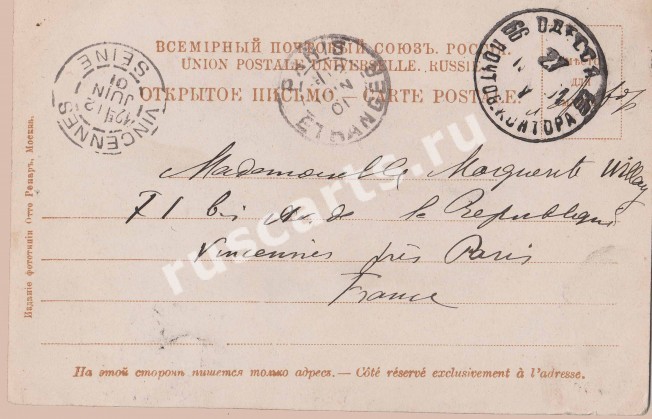 ВСЕМІРНЫЙ ПОЧТОВЫЙ СОЮЗЪ. РОССІЯ.
UNION POSTALE UNIVERSELLE. RUSSIE.
ОТКРЫТОЕ ПИСЬМО. — CARTE POSTALE.
VINCENNES
12 JUIN 01
SEINE
ETRANGER
ОДЕССА
27
ПОЧТОВ. КОНТОРА
Mademoiselle Marguerite
71 bis Av. de la République
Vincennes près Paris
France
Изданіе фототипіи Отто Ренаръ, Москва.
На этой сторонѣ пишется только адресъ. — Côté réservé exclusivement à l'adresse.
ruscarts.ru